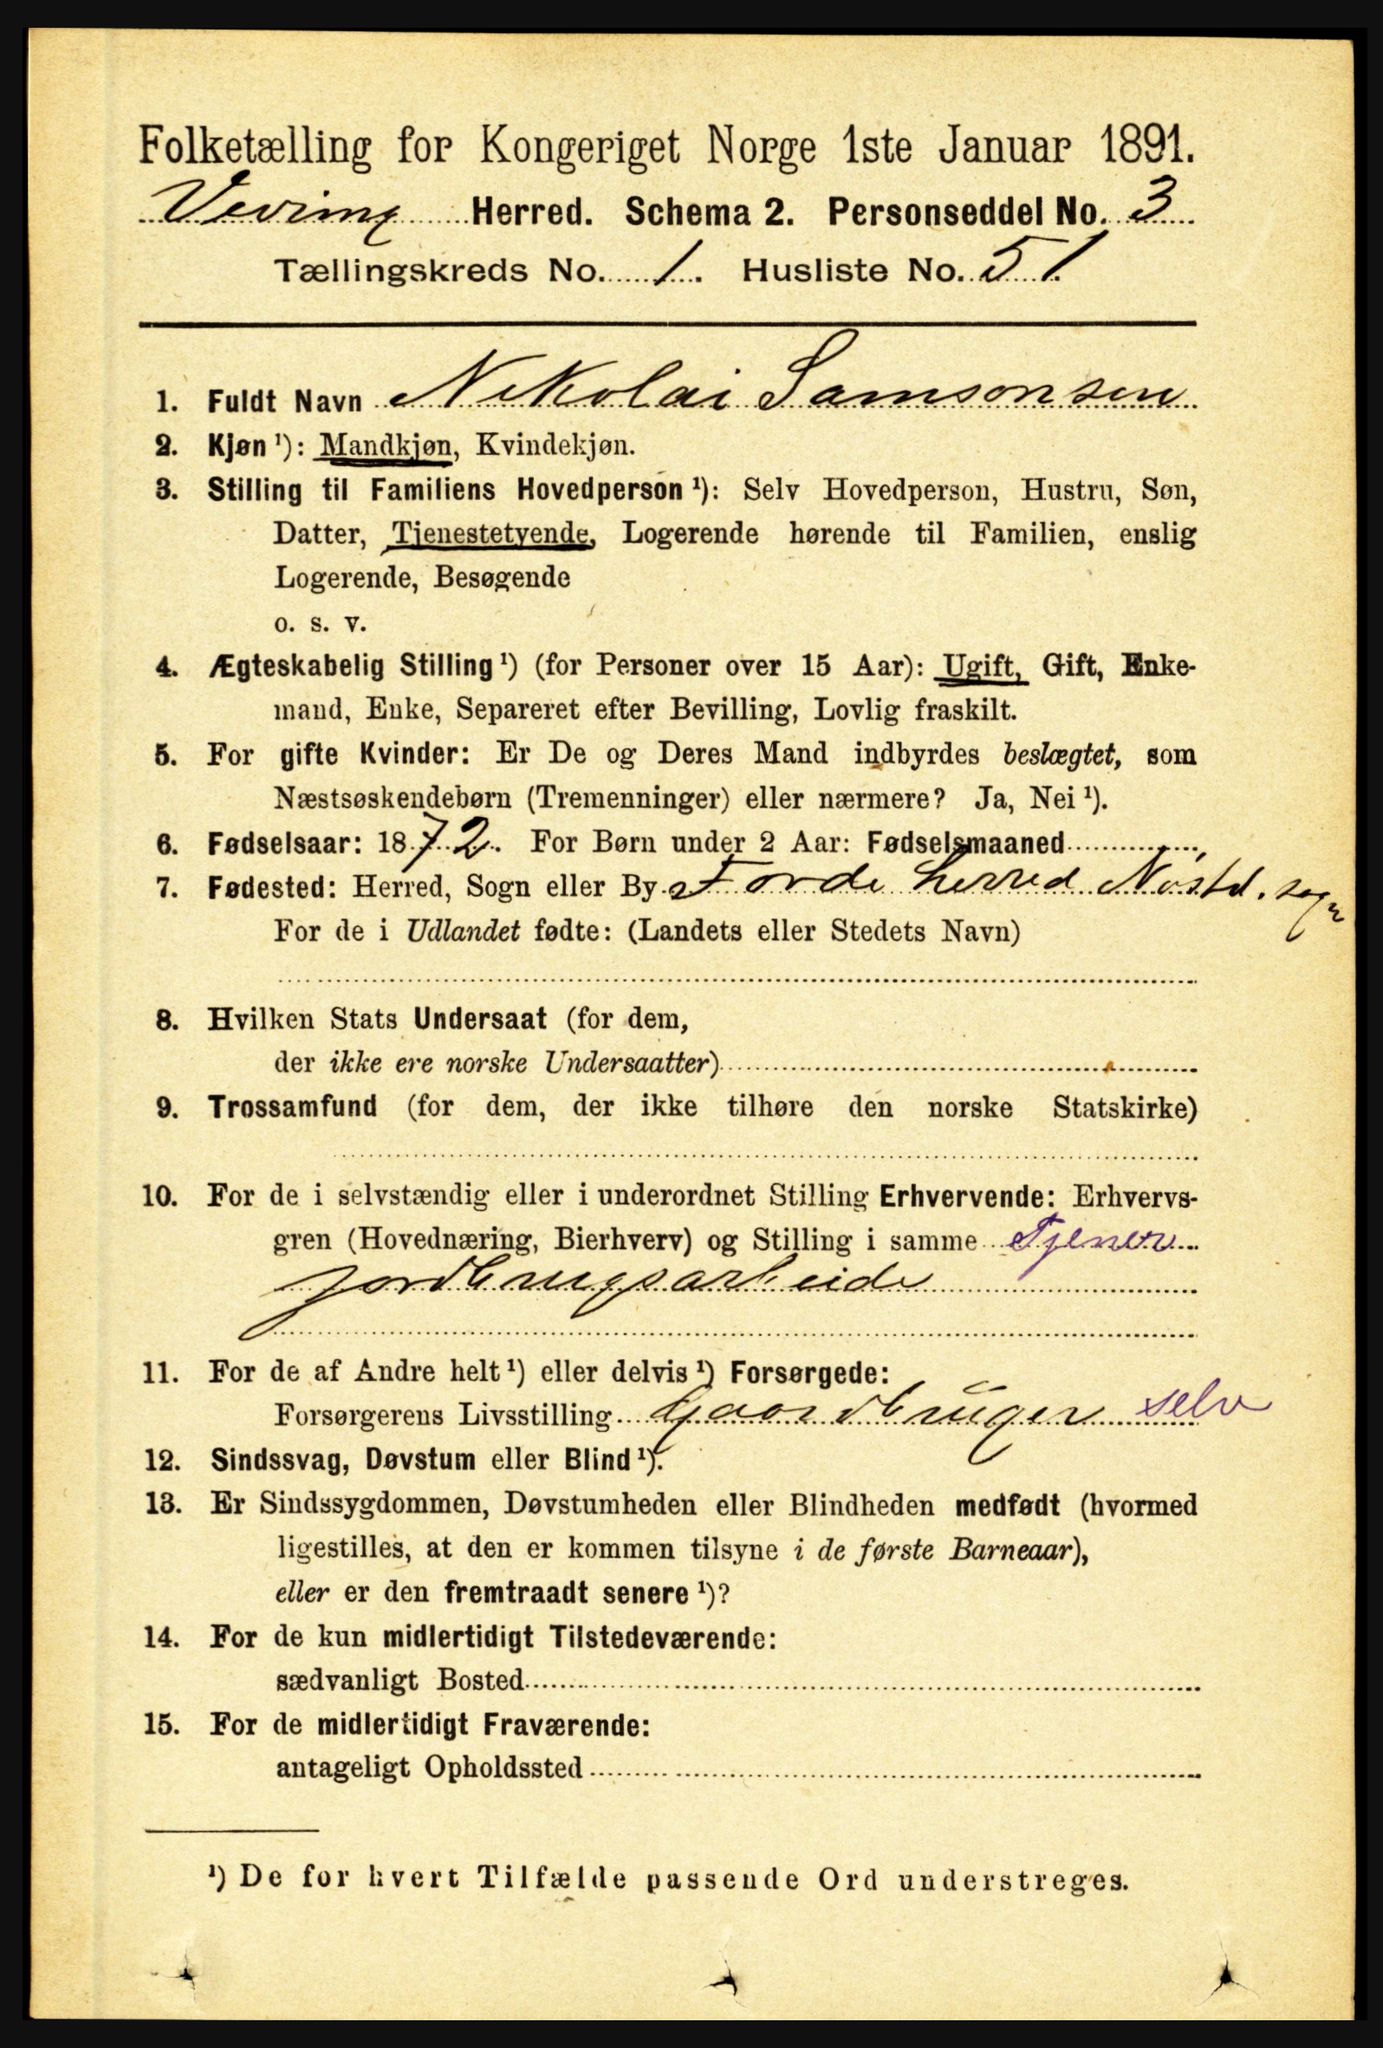 Folketælling for Kongeriget Norge 1ste Januar 1891.
Vevring Herred. Schema 2. Personseddel No. 3
Tællingskreds No. 1. Husliste No. 51
1. Fuldt Navn Nikolai Samsonsen
2. Kjøn ¹): Mandkjøn, Kvindekjøn.
3. Stilling til Familiens Hovedperson ¹): Selv Hovedperson, Hustru, Søn,
Datter, Tjenestetyende, Logerende hørende til Familien, enslig
Logerende, Besøgende
o. s. v.
4. Ægteskabelig Stilling ¹) (for Personer over 15 Aar): Ugift, Gift, Enke-
mand, Enke, Separeret efter Bevilling, Lovlig fraskilt.
5. For gifte Kvinder: Er De og Deres Mand indbyrdes beslægtet, som
Næstsøskendebørn (Tremenninger) eller nærmere? Ja, Nei ¹).
6. Fødselsaar: 1872. For Børn under 2 Aar: Fødselsmaaned
7. Fødested: Herred, Sogn eller By Førde herred Nøstd. sogn
For de i Udlandet fødte: (Landets eller Stedets Navn)
8. Hvilken Stats Undersaat (for dem,
der ikke ere norske Undersaatter)
9. Trossamfund (for dem, der ikke tilhøre den norske Statskirke)
10. For de i selvstændig eller i underordnet Stilling Erhvervende: Erhvervs-
gren (Hovednæring, Bierhverv) og Stilling i samme Tjener
jordbrugsarbeide
11. For de af Andre helt ¹) eller delvis ¹) Forsørgede:
Forsørgerens Livsstilling Gaardbruger selv
12. Sindssvag, Døvstum eller Blind ¹).
13. Er Sindssygdommen, Døvstumheden eller Blindheden medfødt (hvormed
ligestilles, at den er kommen tilsyne i de første Barneaar),
eller er den fremtraadt senere ¹)?
14. For de kun midlertidigt Tilstedeværende:
sædvanligt Bosted
15. For de midlertidigt Fraværende:
antageligt Opholdssted
¹) De for hvert Tilfælde passende Ord understreges.